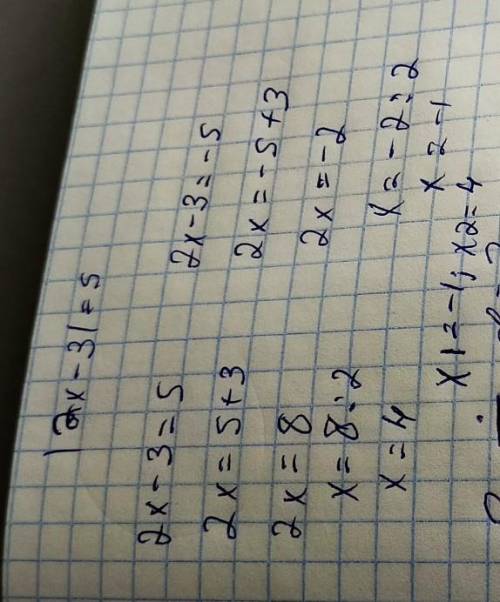 |2x-3|=5
2x-3=5
2x=5+3
2x=8
x=8:2
x=4
2x-3=-5
2x=-5+3
2x=-2
x=-2:2
x=-1
x1=-1; x2=4